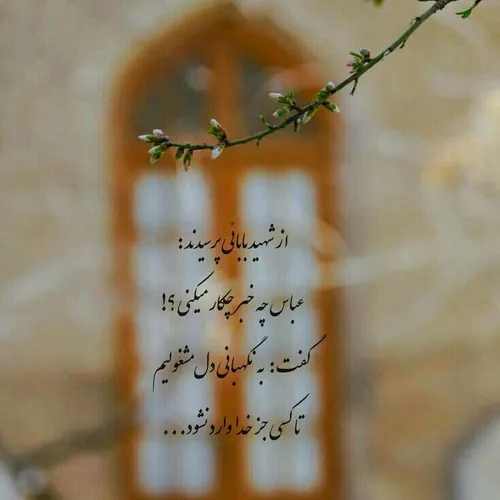 از شهید بابائی پرسیدند:
عباس چه خبر چکار میکنی؟!
گفت: به نگهبانی دل مشغولیم
تا کسی جز خدا وارد نشود...